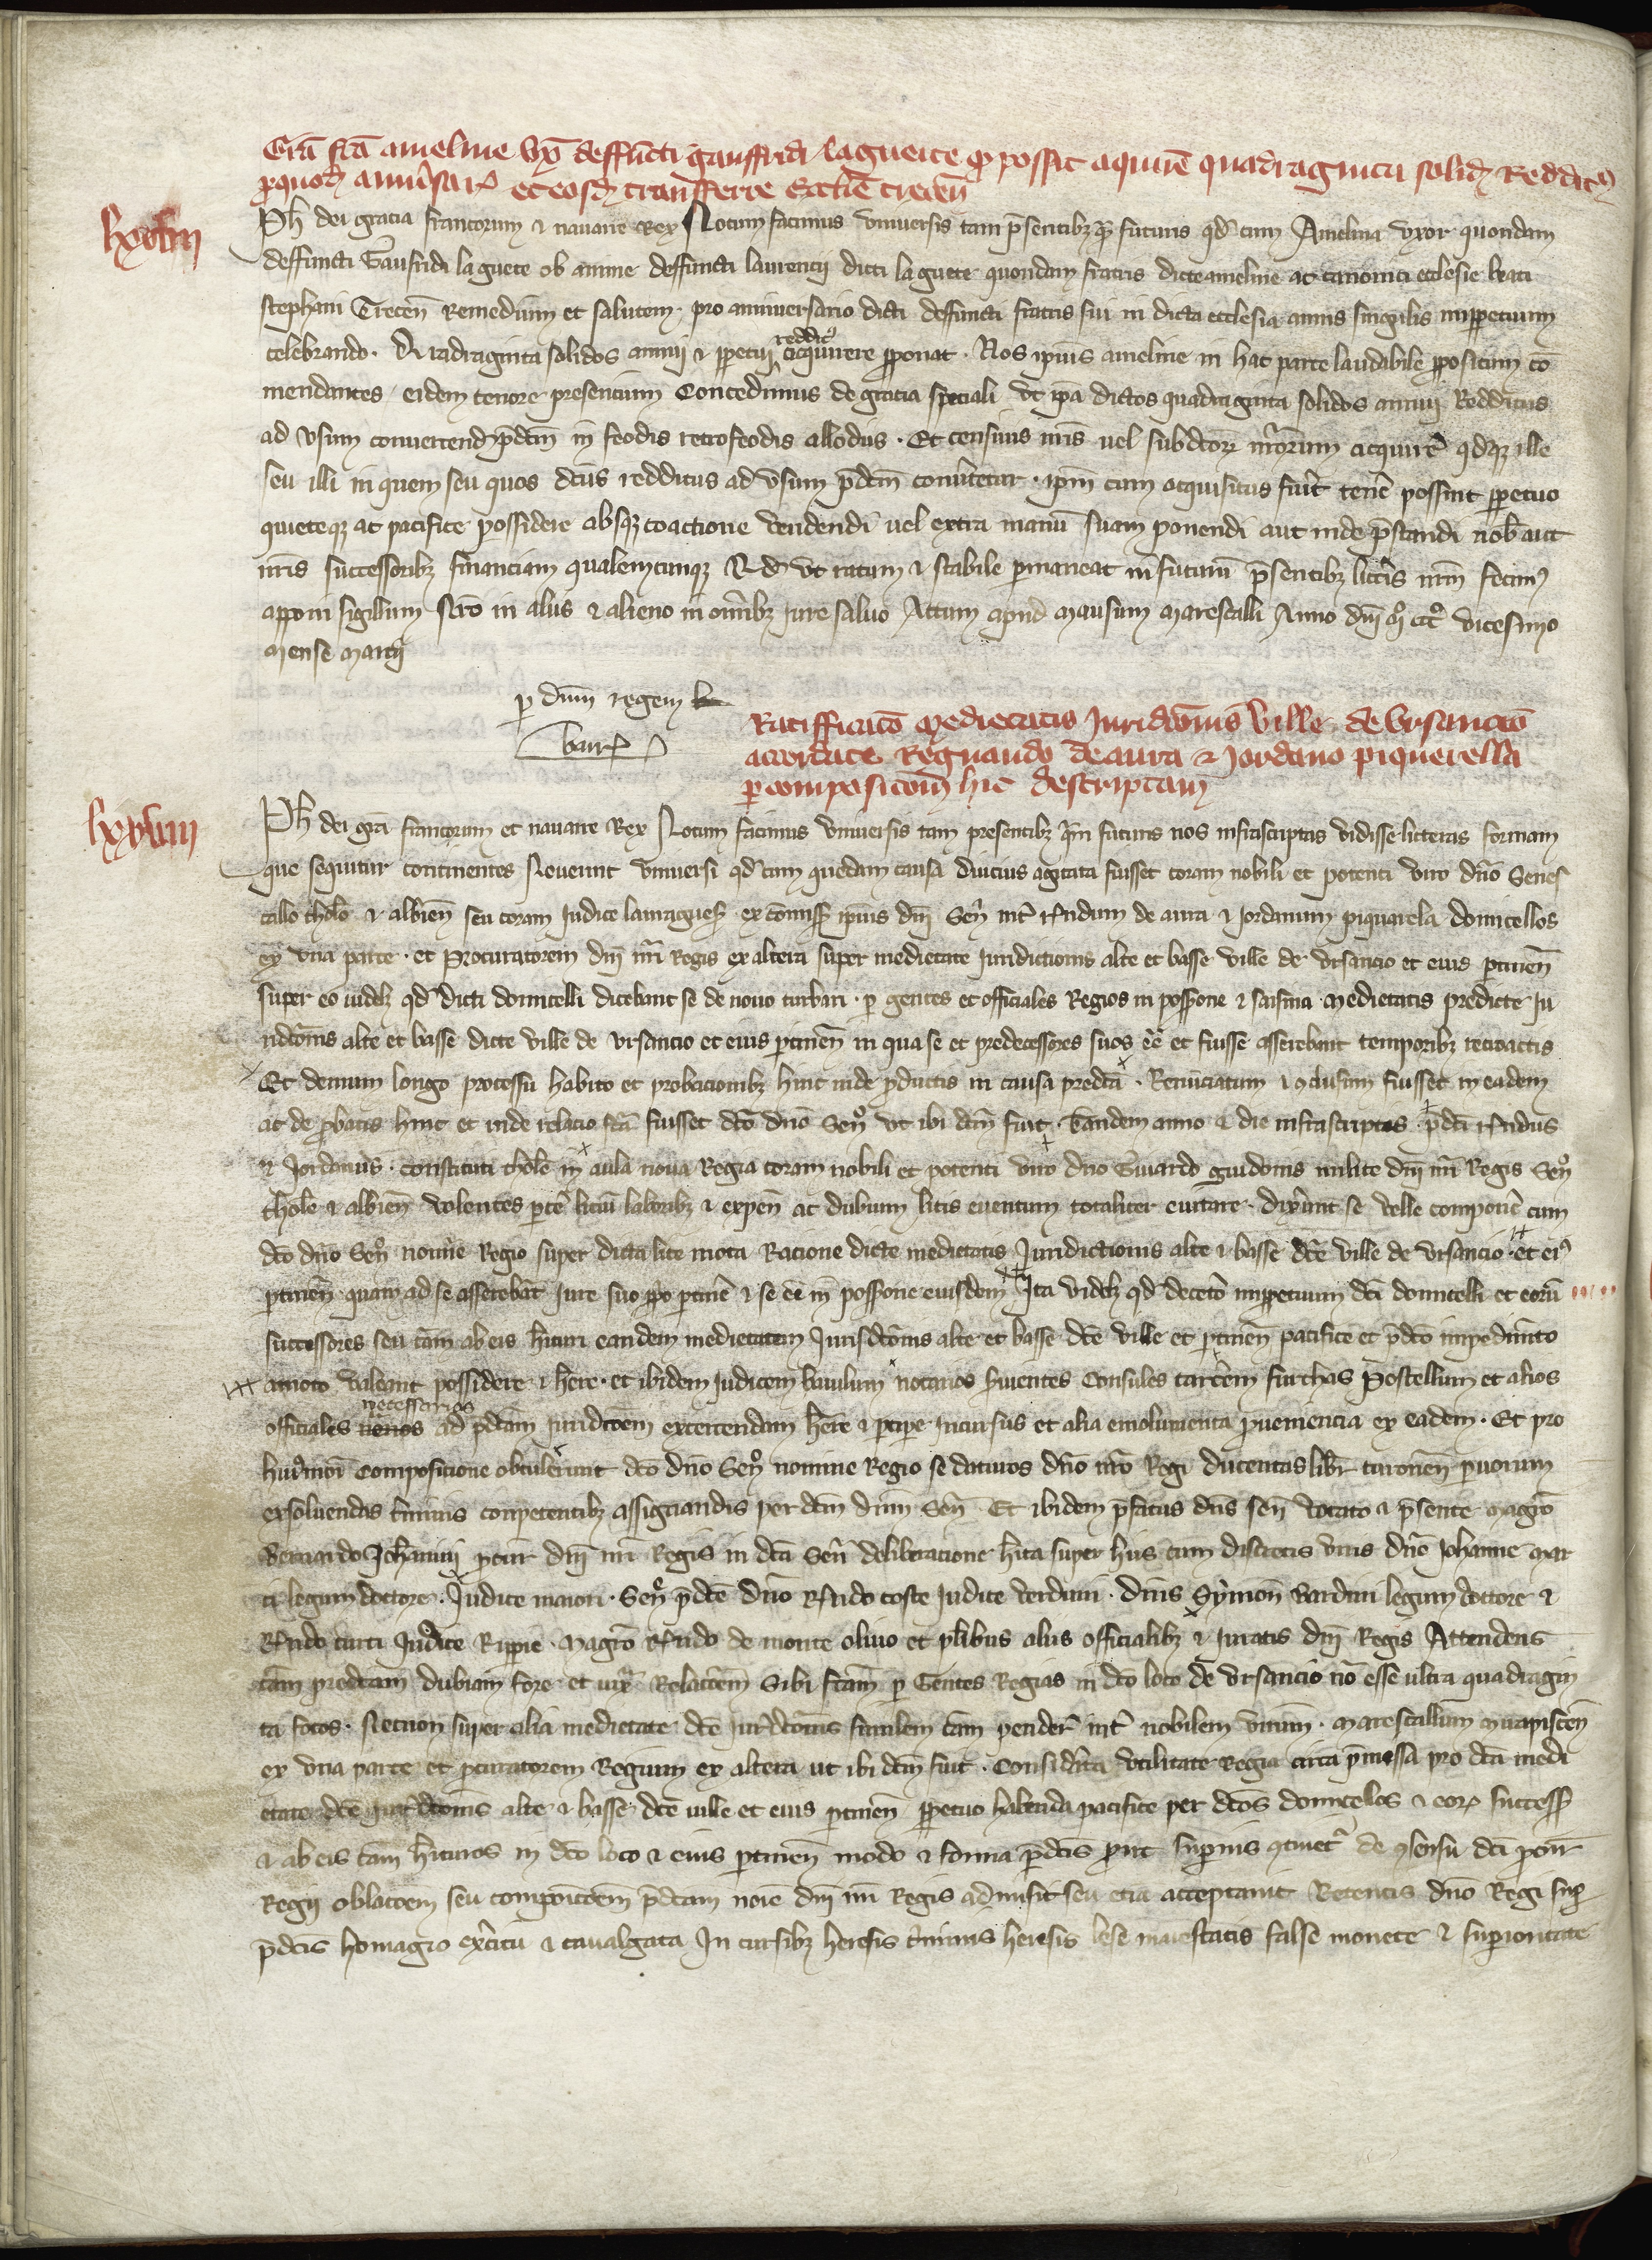 Gra fca ameline vxoris deffuncti gauffridi laguerte quod possit aquire quadraginta solid redditus
proquod anniversario et eosdem transferre ecclie trecen
lxxvii
Ph dei gracia francorum et navarre Rex Notum facimus universis tam presentibus quam futuris qd cum Amelina uxor quondam
deffuncti Gaufridi la guete ob anime deffuncti laurencij dicti la guete quondam fratris dicte ameline ac canonici ecclesie beati
stephani Trecen Remedium et salutem pro anniversario dicti deffuncti fratris sui in dicta ecclesia annis singulis imppetuum
celebrando. Quadraginta solidos annui et ppetui reddit acquirere pponat. Nos ipius ameline in hac parte laudabile ppositum com
mendantes eidem tenore presencium Concedimus de gracia speciali ut ipa dictos quadraginta solidos annui Redditus
ad usum convertend pdcm in feodis retrofeodis allodiis. Et censivis nris uel subdtor nrorum acquire qdque ille
seu illi in quem seu quos dcus redditus ad usum pdcm convertetur. ipm cum acquisitus fuerit tene possint ppetuo
quieteque ac pacifice possidere absque coactione vendendi uel extra manu suam ponendi aut inde prestandi nob aut
nris successoribus financiam qualemcunque Qd ut ratum et stabile pmaneat in futurum presentibus litteris nrm fecimus
apponi sigillum nro in aliis et alieno in omnibus jure salvo Actum apud Mausum Marescalli Anno dni mo ccco vicesimo
Mense Marcij
p dnm regem
barr
Ratifficatio medietatis Jurididonis ville de Ursancio
accordate Regnaudo de aura et Jordano piquerella
p composicionem hic descriptam
lxxviii
Ph dei gra francorum et navarre Rex Notum facimus universis tam presentibus qm futuris nos infrascriptas vidisse litteras formam
que sequitur continentes Noverint universi qd cum quedam causa diucius agitata fuisset coram nobili et potenti viro dno Senes
callo tholo et albien seu coram Judice lauragues ex commiss ipius dni Sen inter Rndum de aura et Jordanum piquarela domicellos
ex una parte. et Procuratorem dni nri Regis ex altera super medietate Juridictionis alte et basse ville de Ursancio et eius ptinen
super eo videlz qd dicti domicelli dicebant se de novo turbari. p gentes et officiales Regios in possone et saisina Medietatis predicte Ju
ridconis alte et basse dicte ville de Ursancio et eius ptinen in qua se et predecessores suos ee et fuisse asserebant temporibus retroactis
Et demum longo processu habito et probacionibus hinc inde pductis in causa predca. Renunciatum et conclusum fuisset in eadem
ac de probatis hinc et inde relacio fca fuisset dco dno Seno ut ibi dcm fuit. Tandem anno et die infrascriptis. pdci Rndus
et Jordanus. constituti thole in aula nova Regia coram nobili et potenti viro dno Guiardo guidonis milite dni nri Regis Seno
thole et albien volentes pce licium laboribus et expen ac dubium litis eventum totaliter evitare. dixerunt se velle componere cum
dco dno Seno nomine Regio super dicta lite mota Racione dicte medietatis Juridictionis alte et basse dce ville de Ursancio et eius
ptinen quam ad se asserebant Jure suo ppo ptinere et se ee in possone eiusdem Ita videlz qd decetero imppetuum dci domicelli et eorum
successores seu cam ab eis hituri eandem medietatem Jurisdconis alte et basse dce ville et ptinen pacifice et pdco impedimto
amoto valeant possidere et here. et ibidem Judicem baiulum notarios servientes Consules carcerem furchas Postellum et alios
officiales necessarios ad pdcam Juridcoem exercendam here et pcipe Incursus et alia emolumenta pveniencia ex eadem. Et pro
huiusmoi Composicione obtulerunt dco dno Seno nomine Regio se daturos dno nro Regi ducentas libr turonen pvorum
exsolvendas terminis conpetentibus assignandis per dcm dnm Sen Et ibidem pfatus dns sen vocato et psente magro
Bernardo Johannij pcur dni nri Regis in dca Sen deliberacione hita super hiis cum discretis viris dno Johanne Mar
ci legum doctore. Judice maiori. Seno pdce dno Rndo coste Judice verduni. dnis Symon Bardini legum doctore et
Rndo curti Judice Rippie. Magro Rndo de monte olivo et plibus aliis officialibus et Juratis dni Regis Attendens
cam predcam dubiam fore et iux Relacoem Sibi fcam p Gentes Regias in dco loco de Ursancio no esse ultra quadragin
ta focos. Necnon super alia medietate dce jurdconis similem cam pender inter nobilem virum. Marescallum Mirapiscen
ex una parte et pcuratorem Regium ex altera ut ibi dcm fuit. Considerata utilitate Regia circa pmissa pro dca medi
etate dce jurdconis alte et basse dce ville et eius ptinen ppetuo habenda pacifice per dcos domicellos et eor success
et ab eis cam hituros in dco loco et eius ptinen modo et forma pdcis prout superius continetur de consensu dci pcur
Regij oblacoem seu compoicoem pdcam noie dni nri Regis admisit seu etia acceptavit Retentis dno Regi sup
pdcis homagio exercitu et cavalgata In cursibus heresis criminis heresis lese maiestatis false monete et superioritate